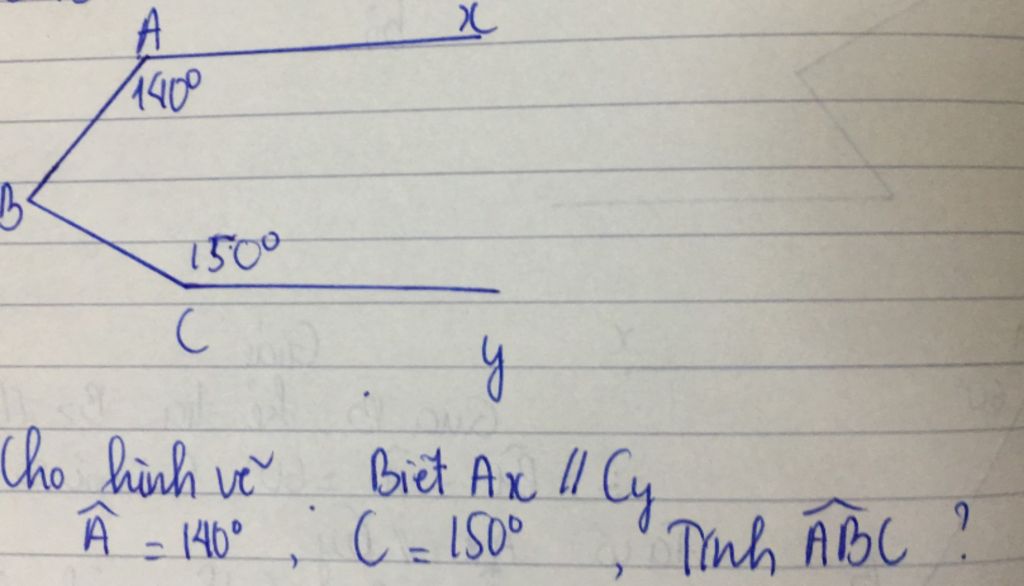 A x
140°
B
150°
C
y
Cho hình vẽ Biết Ax // Cy
Â = 140°, C = 150°, Tính ABC ?